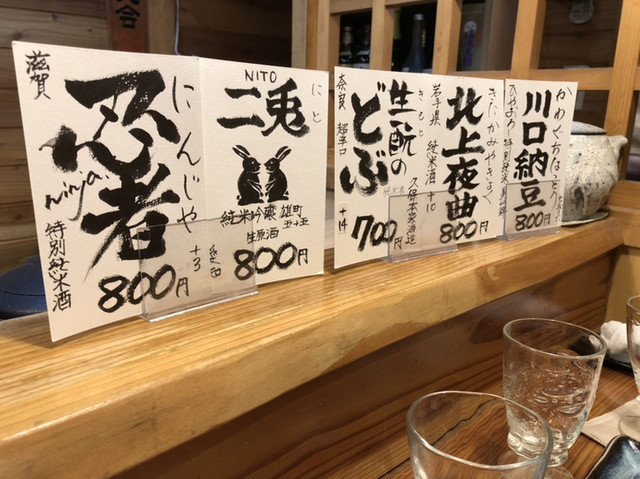 滋賀
忍者
にんじゃ
ninja
特別純米酒
+3
800円
NITO
二兎
にと
純米吟醸 雄町
五十五
生原酒
800円
奈良 超辛口
生酛の
どぶ
きもと
久保本家酒造
+14
700円
岩手県 純米酒 +10
北上夜曲
きたかみやきょく
800円
川口納豆
かわぐちなっとう
特別純米酒
800円